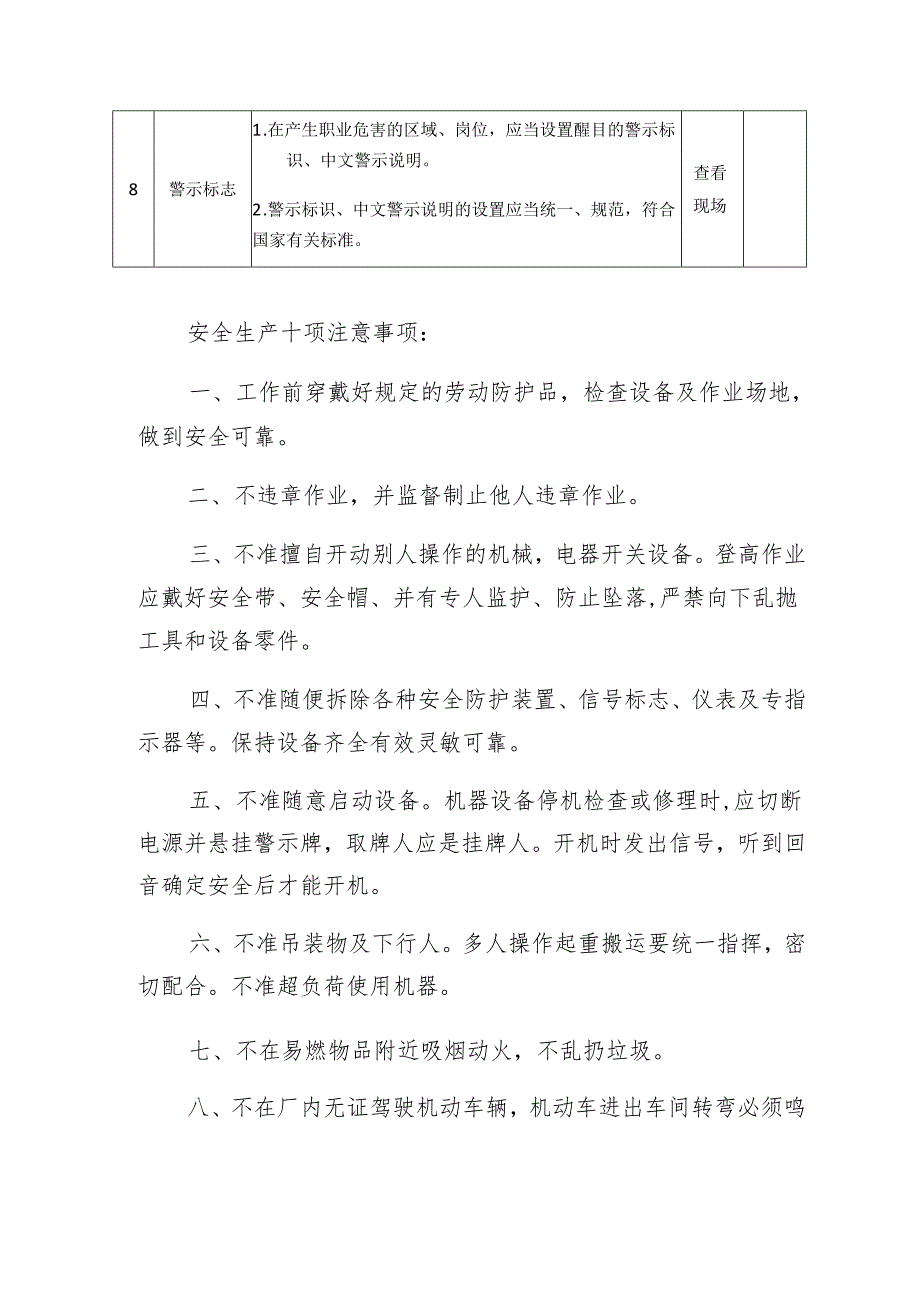 8
警示标志
1.在产生职业危害的区域、岗位，应当设置醒目的警示标
识、中文警示说明。
2.警示标识、中文警示说明的设置应当统一、规范，符合
国家有关标准。
查看
现场
安全生产十项注意事项：
一、工作前穿戴好规定的劳动防护品，检查设备及作业场地，
做到安全可靠。
二、不违章作业，并监督制止他人违章作业。
三、不准擅自开动别人操作的机械，电器开关设备。登高作业
应戴好安全带、安全帽、并有专人监护、防止坠落,严禁向下乱抛
工具和设备零件。
四、不准随便拆除各种安全防护装置、信号标志、仪表及专指
示器等。保持设备齐全有效灵敏可靠。
五、不准随意启动设备。机器设备停机检查或修理时,应切断
电源并悬挂警示牌，取牌人应是挂牌人。开机时发出信号，听到回
音确定安全后才能开机。
六、不准吊装物及下行人。多人操作起重搬运要统一指挥，密
切配合。不准超负荷使用机器。
七、不在易燃物品附近吸烟动火，不乱扔垃圾。
八、不在厂内无证驾驶机动车辆，机动车进出车间转弯必须鸣